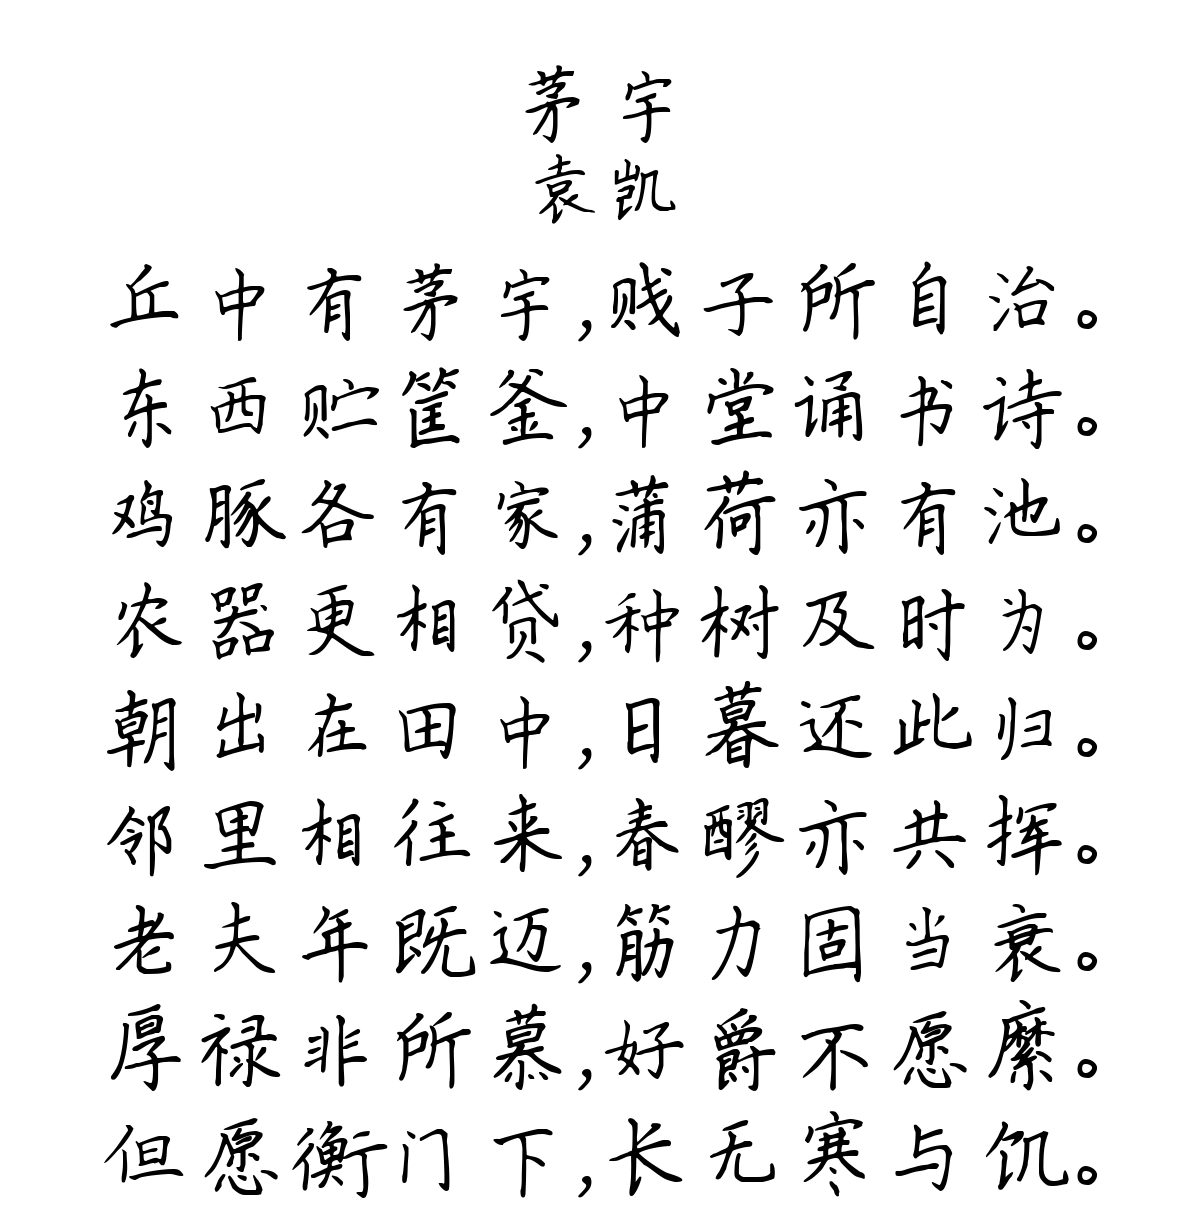 茅宇
袁凯
丘中有茅宇,贱子所自治。
东西贮筐釜,中堂诵书诗。
鸡豚各有家,蒲荷亦有池。
农器更相贷,种树及时为。
朝出在田中,日暮还此归。
邻里相往来,春醪亦共挥。
老夫年既迈,筋力固当衰。
厚禄非所慕,好爵不愿縻。
但愿衡门下,长无寒与饥。